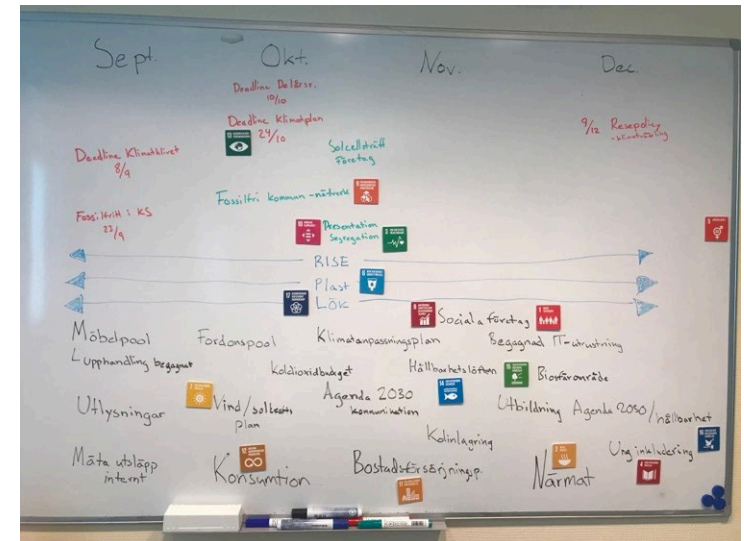 Sept.
Okt.
Nov.
Dec.
Deadline Delårsr.
10/10
Deadline Klimatplan
24/10
9/12 Resepolicy
Deadline Klimatklivet
8/9
Solcellsträff
företag
Fossilfri kommun - nätverk
Fossilfritt i KS
23/9
Presentation
Segregation
RISE
Plast
LÖK
Sociala företag
Möbelpool
Fordonspool
Klimatanpassningsplan
Begagnad IT-utrustning
upphandling begagnat
Koldioxidbudget
Hållbarhetslöften
Biosfärområde
Utlysningar
Vind/solkrafts
plan
Agenda 2030
kommunikation
Utbildning Agenda 2030/hållbarhet
Kolinlagring
Mäta utsläpp
internt
Konsumtion
Bostadsförsörjningsp.
Närmat
Ung inkludering